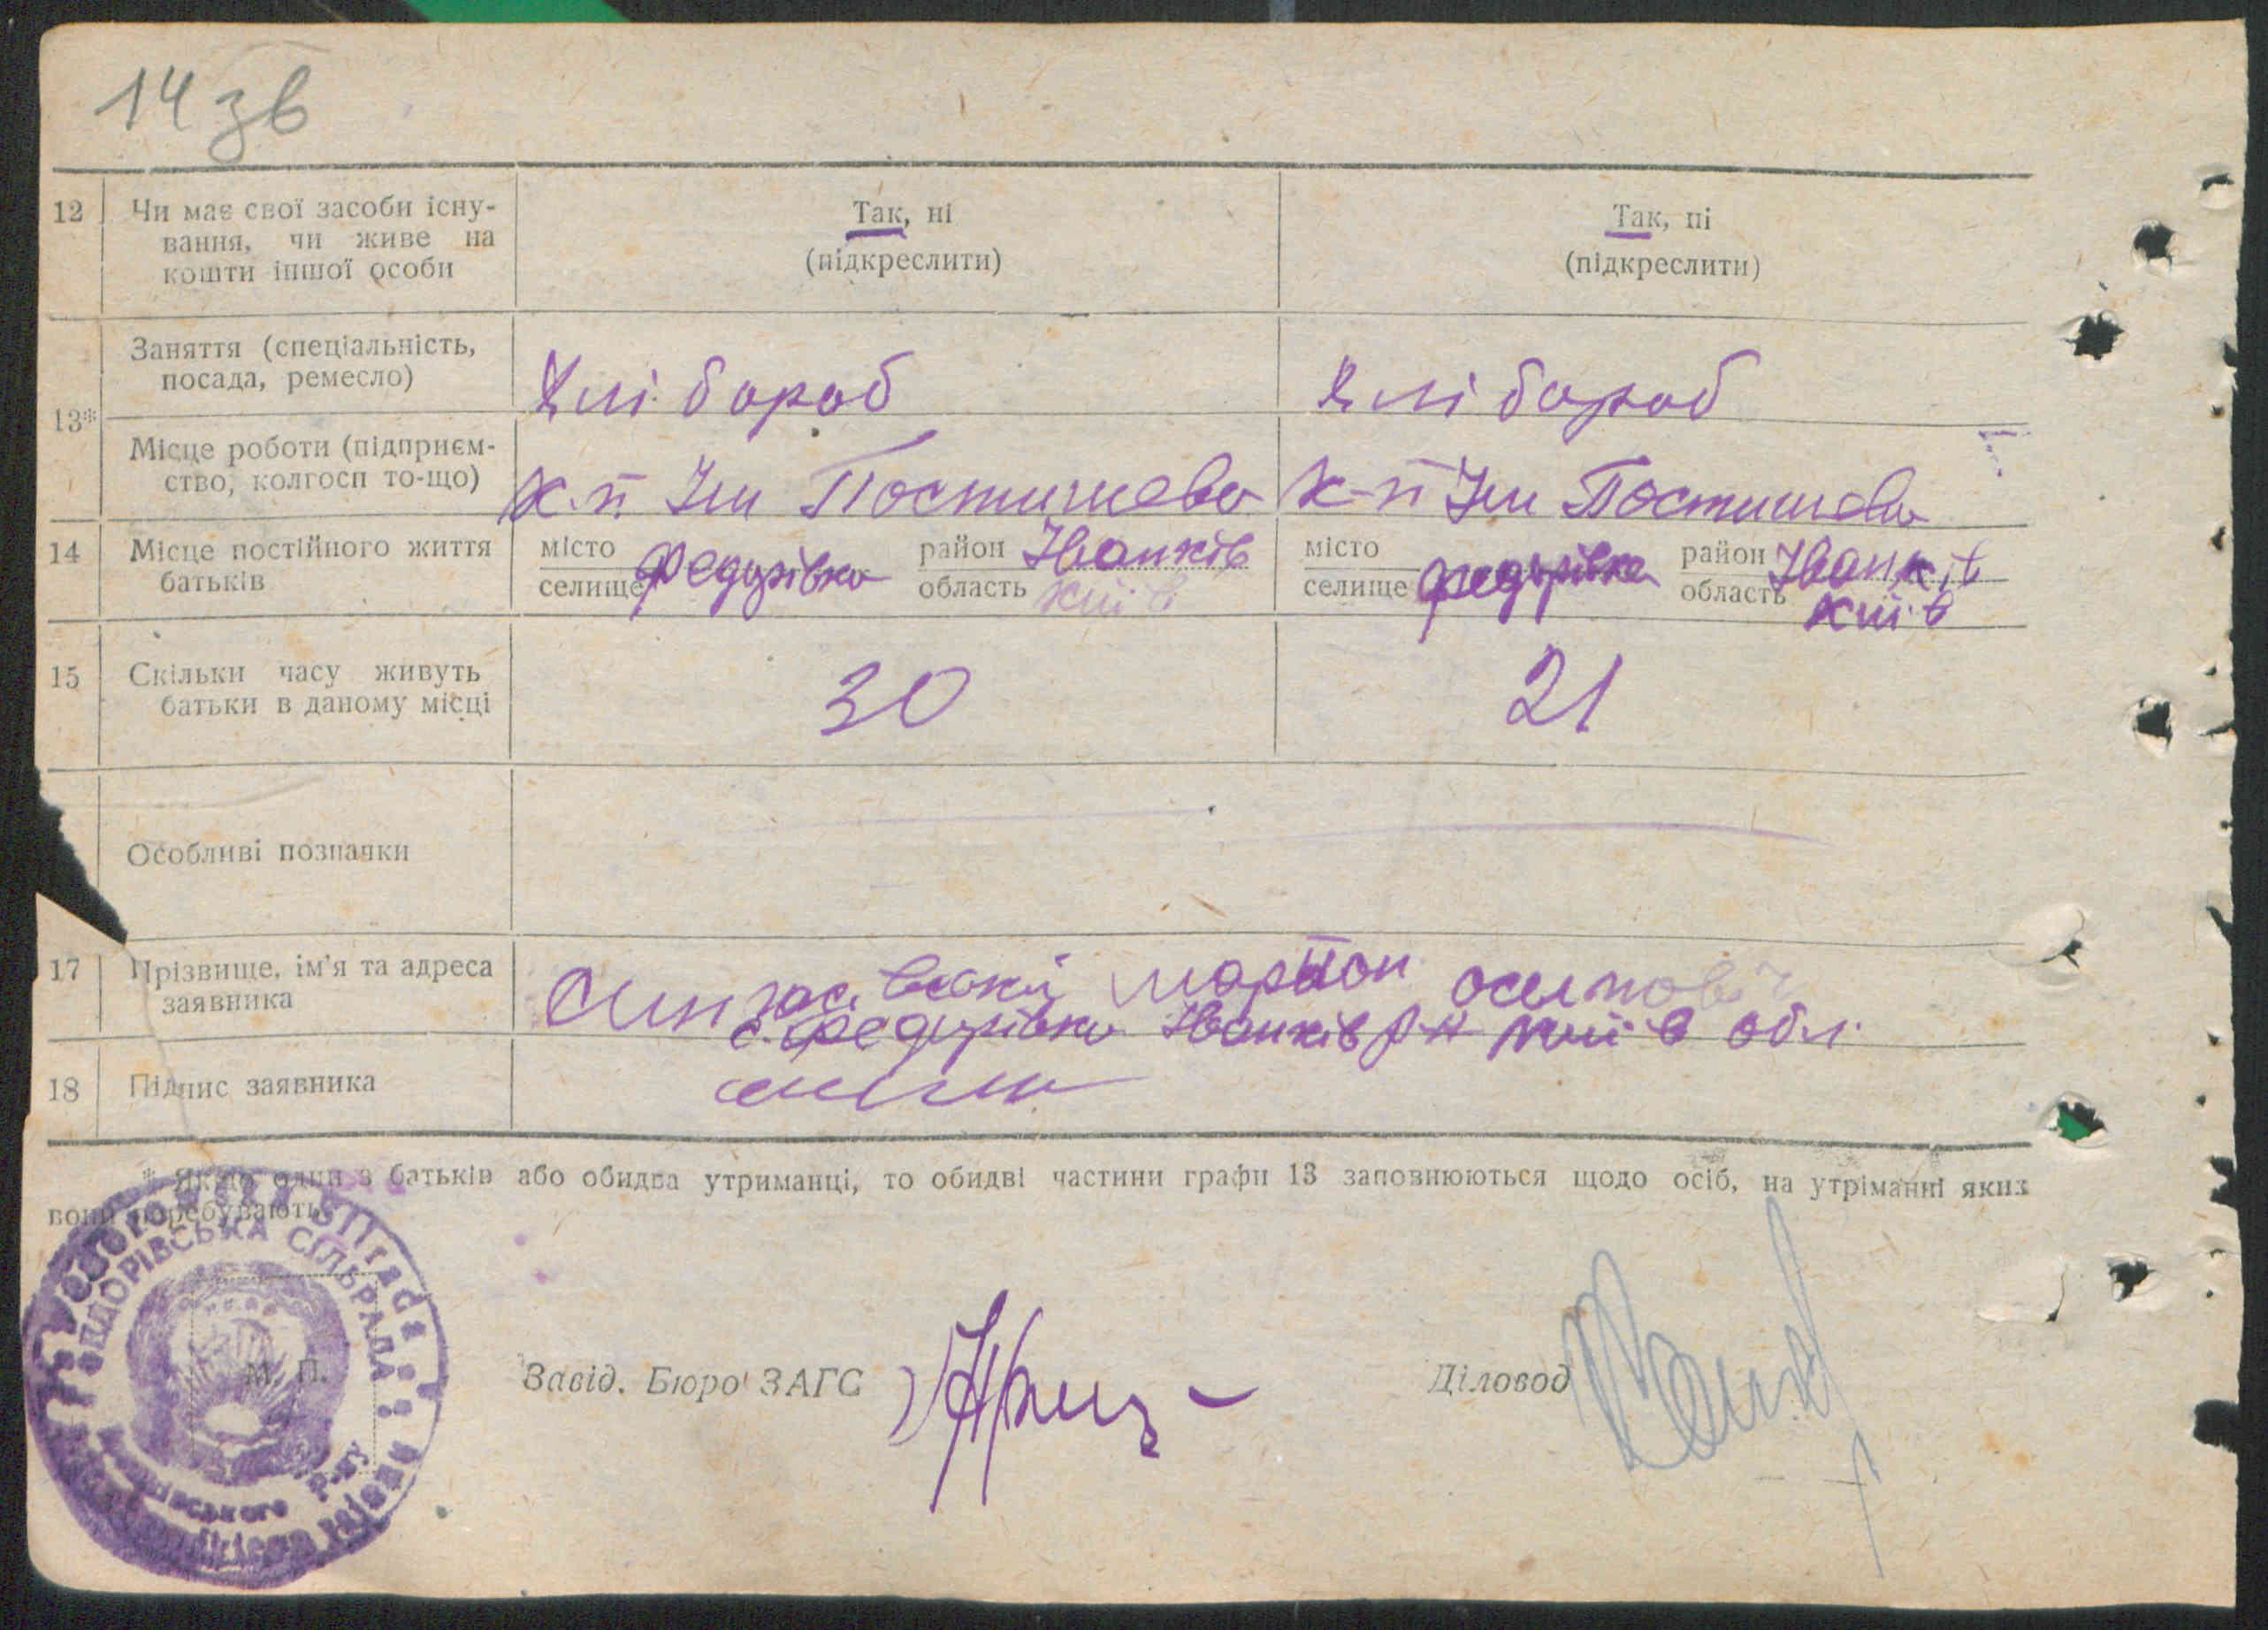 14 зв
12 Чи має свої засоби існу-
вання, чи живе на
кошти іншої особи
Так, ні
(підкреслити)
Так, ні
(підкреслити)
13*
Заняття (спеціальність,
посада, ремесло)
Хлібороб
Хлібороб
Місце роботи (підприєм-
ство, колгосп то-що)
к-п Ім Постишева
к-п Ім Постишева
14 Місце постійного життя
батьків
місто
селище Федурівка
район Іванків
область Київ
місто
селище Федурівка
район Іванків
область Київ
15 Скільки часу живуть
батьки в даному місці
30
21
Особливі позначки
17 Прізвище, ім'я та адреса
заявника
осипович
с. Федурівка Іванків р-н Київ обл.
18 Підпис заявника
* Якщо один з батьків або обидва утриманці, то обидві частини графи 13 заповнюються щодо осіб, на утріманні яких
вони перебувають.
СІЛЬРАДА
М. П.
Завід. Бюро ЗАГС
Діловод